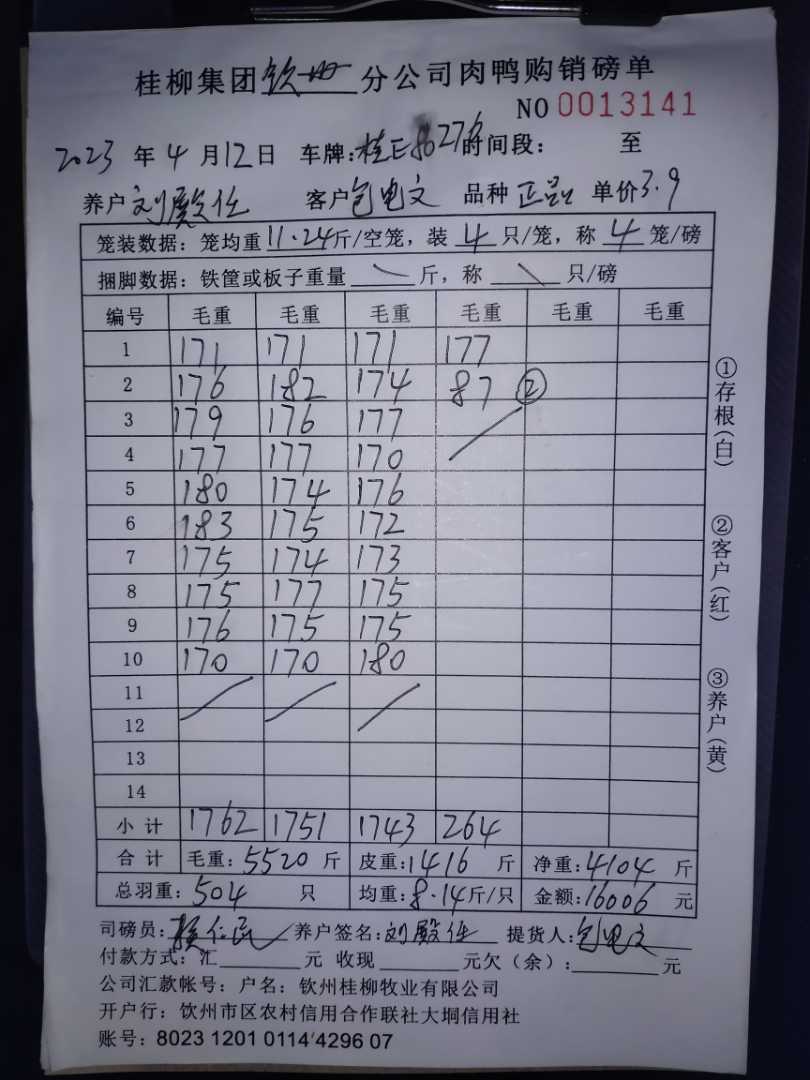 桂柳集团钦州分公司肉鸭购销磅单
NO 0013141
2023 年 4 月 12 日 车牌:桂E86276 时间段: 至
养户 刘殿任 客户 包电文 品种 正品 单价 3.9
笼装数据:笼均重 11.24 斤/空笼,装 4 只/笼,称 4 笼/磅
捆脚数据:铁筐或板子重量 斤,称 只/磅
编号 毛重 毛重 毛重 毛重 毛重 毛重
1 171 171 171 177
2 176 182 174 87 ②
3 179 176 177
4 177 177 170
5 180 174 176
6 183 175 172
7 175 174 173
8 175 177 175
9 176 175 175
10 170 170 180
11
12
13
14
小计 1762 1751 1743 264
合计 毛重:5520 斤 皮重:1416 斤 净重:4104 斤
总羽重:504 只 均重:8.14 斤/只 金额:16006 元
①存根(白)
②客户(红)
③养户(黄)
司磅员: 养户签名:刘殿任 提货人:包电文
付款方式:汇 元 收现 元欠(余): 元
公司汇款帐号:户名:钦州桂柳牧业有限公司
开户行:钦州市区农村信用合作联社大垌信用社
账号:8023 1201 0114 4296 07